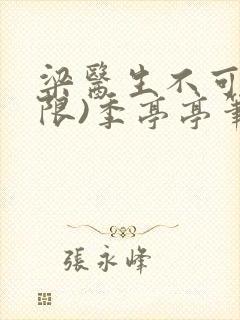 梁醫生不可
限)季亭亭筆
張永峰